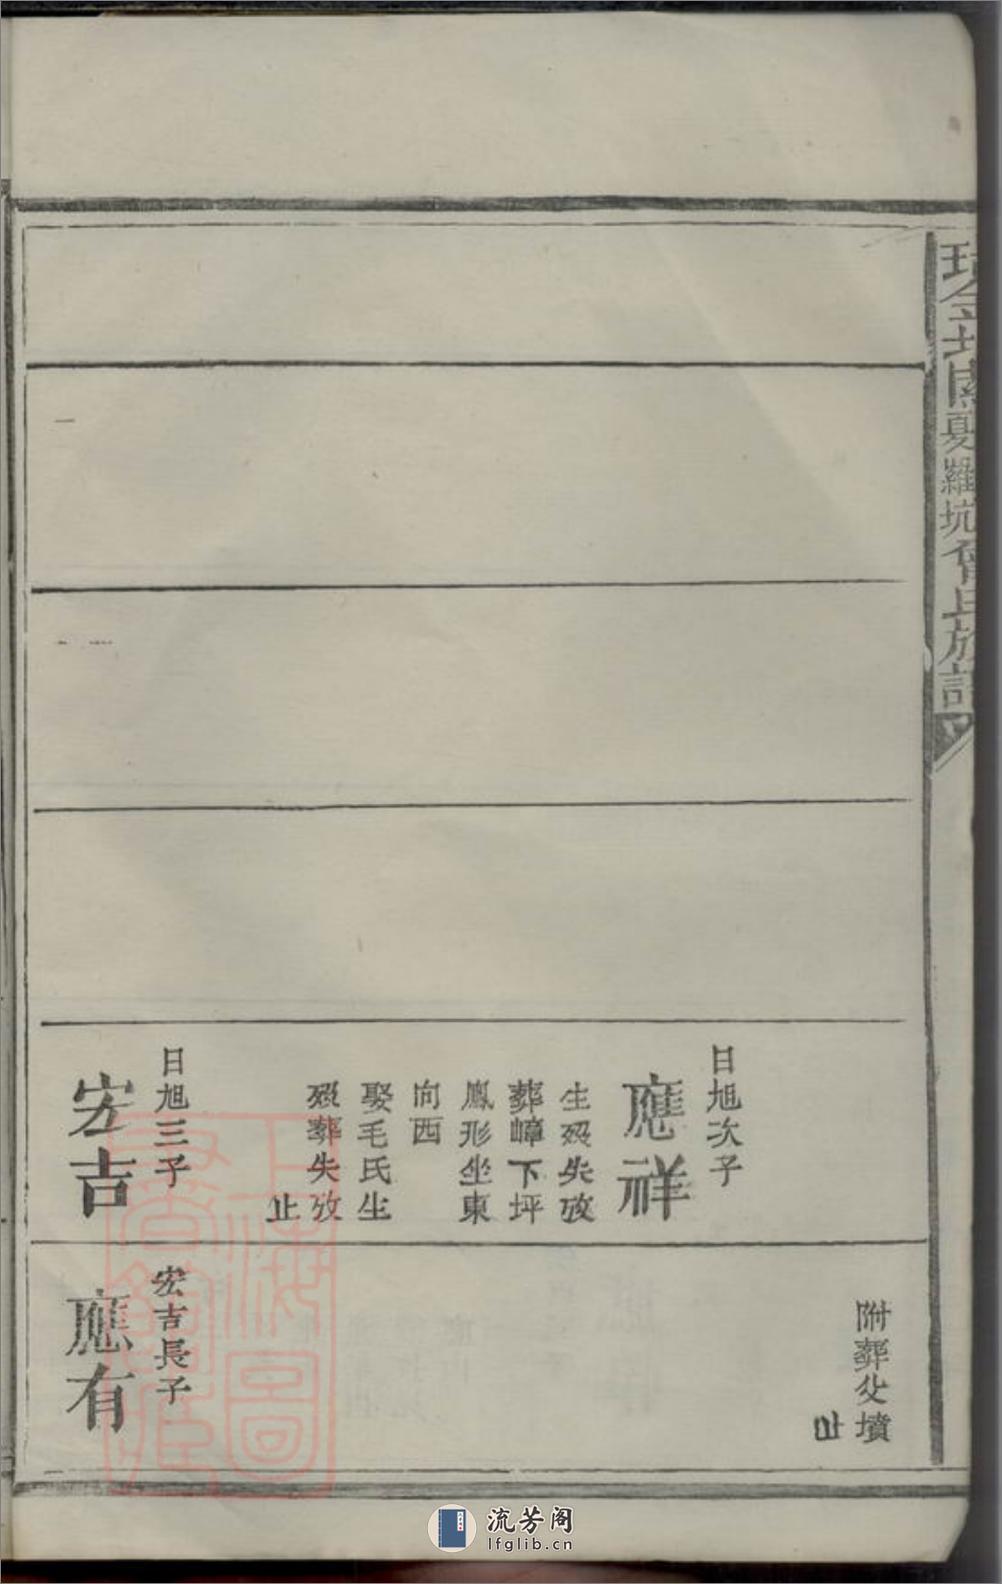 瑞金九堡園夏羅坑曾氏族譜
日旭次子
應祥
生歿失攷
葬嶂下坪
鳳形坐東
向西
娶毛氏生
歿葬失攷
止
日旭三子
宏吉
附葬父墳
止
宏吉長子
應有
上海圖書館藏
流芳阁
lfglib.cn